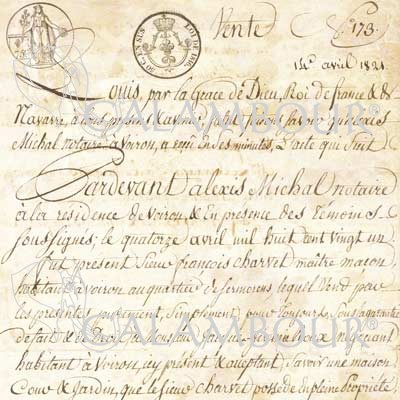 Vente
N.º 173.
14 avril 1821.
Louis, par la Grace de Dieu, Roi de france & de
Navarre, a tous présens & avenir, salut; faisons savoir que alexis
Michal notaire a Voiron, a reçu en des minutes, L'acte qui suit
Pardevant alexis Michal notaire
à la residence de voiron, & En présence des Temoins
soussignés; le quatorze avril mil huit cent vingt un
fut present sieur françois charvet maitre maçon
habitant a voiron au quartier de sermorens lequel vend par
les présentes purement, simplement, pour toujours & sous la garantie
de fait & de Droit au sieur jacques negociant
habitant à Voiron, icy présent & acceptant; savoir une maison
Cour & Jardin, que le sieur charvet possede en pleine propriété,
CALAMBOUR®
CALAMBOUR®